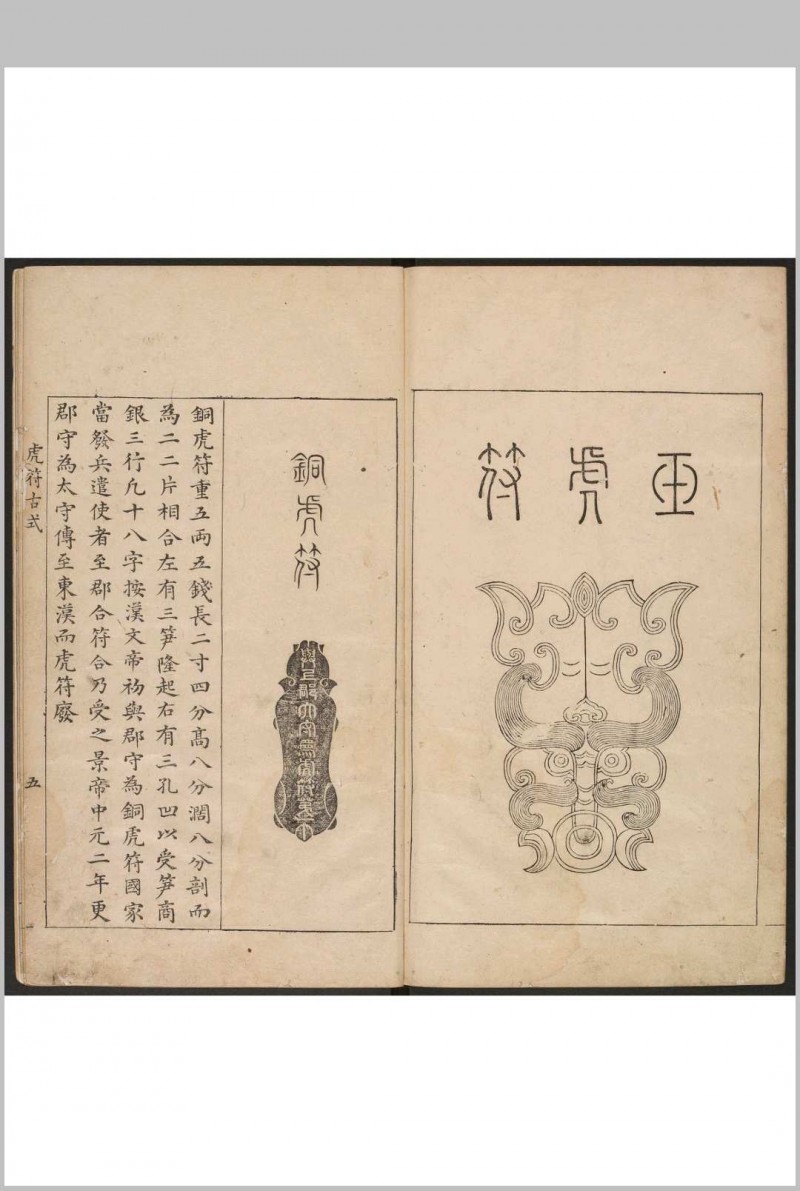 玉虎符
銅虎符
銅虎符重五兩五錢長二寸四分髙八分濶八分剖而
為二二片相合左有三笋隆起右有三孔凹以受笋商
銀三行凢十八字按漢文帝初與郡守為銅虎符國家
當發兵遣使者至郡合符合乃受之景帝中元二年更
郡守為太守傳至東漢而虎符廢
虎符古式
五